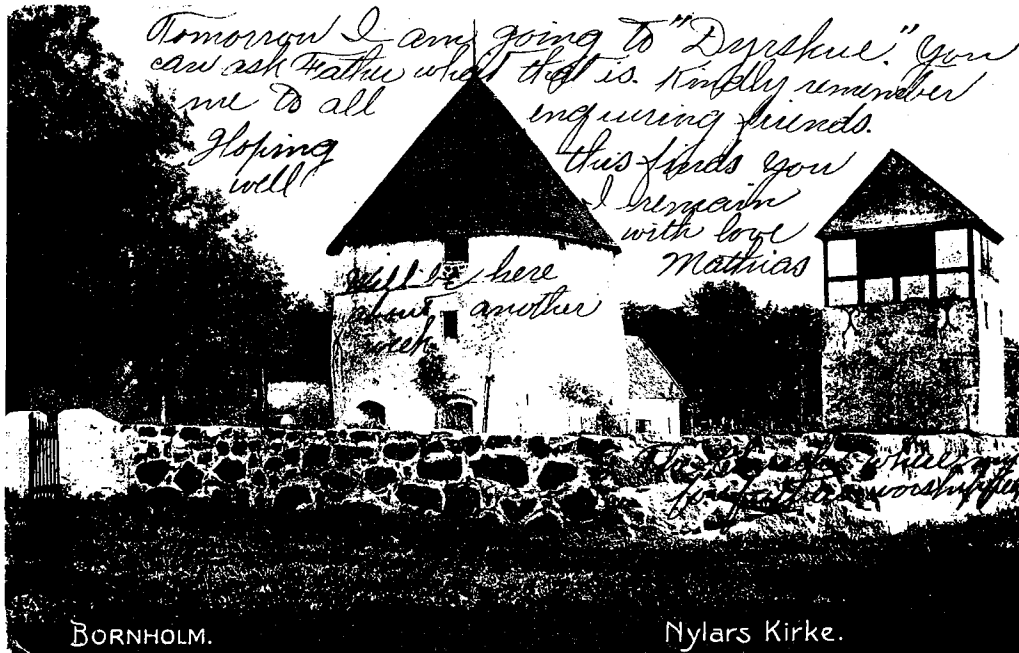 Tomorrow I am going to "Dyrskue." You
can ask Father what that is. Kindly remember
me to all enquiring friends.
Hoping this finds you
well I remain
with love
Mathias
Will be here
about another
week
The Church where my
forfathers worshipped
BORNHOLM.
Nylars Kirke.